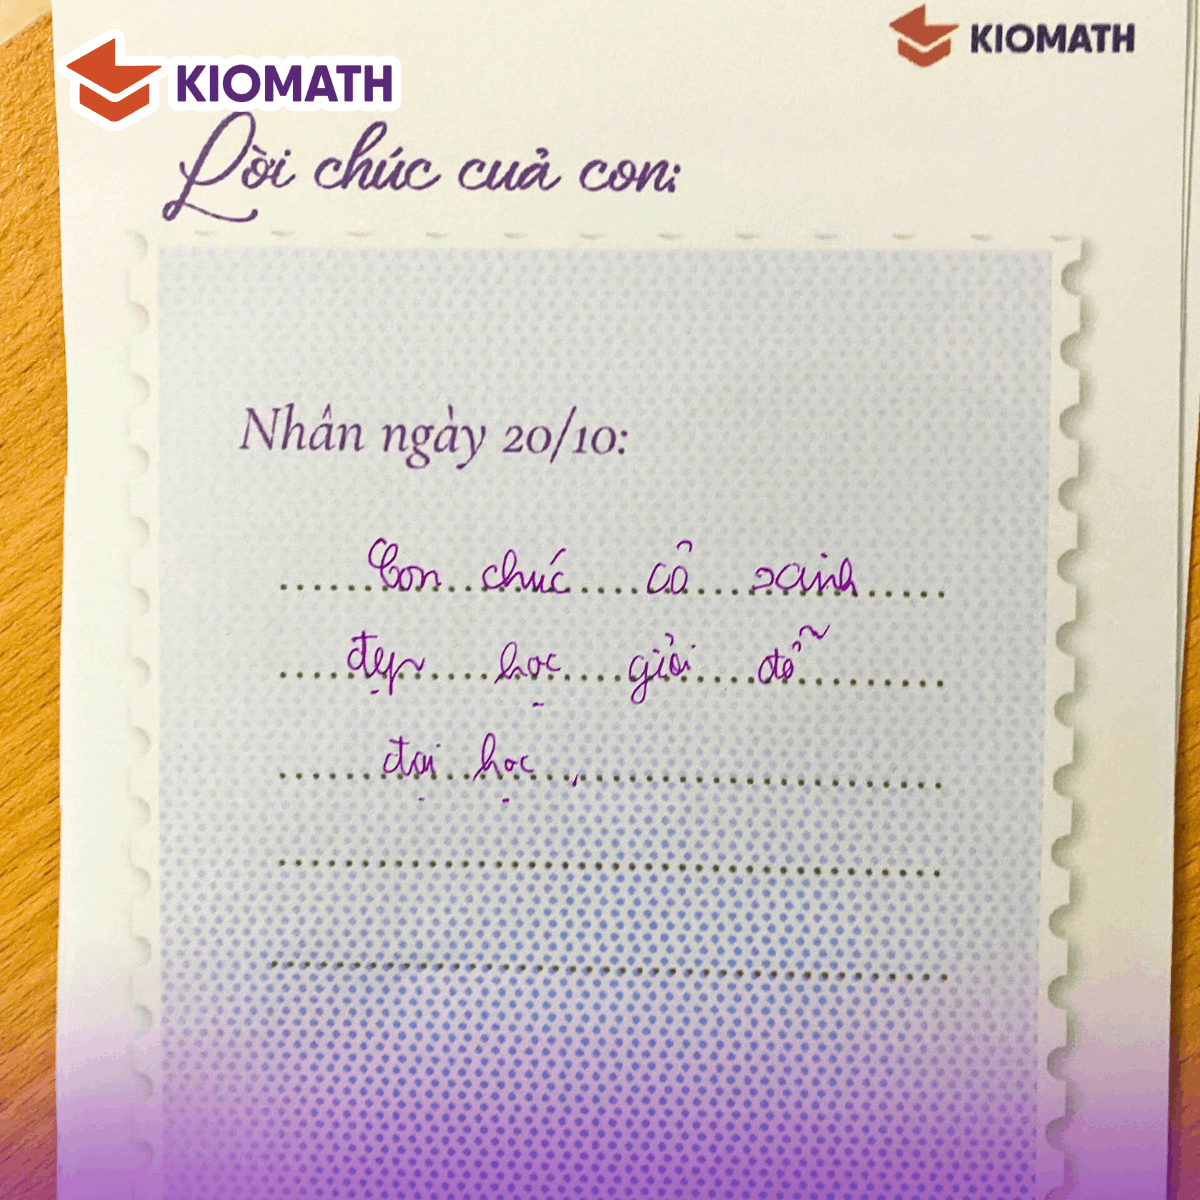 KIOMATH
KIOMATH
Lời chúc cuả con:
Nhân ngày 20/10:
Con chúc cô xinh
đẹp học giỏi đỗ
đại học,